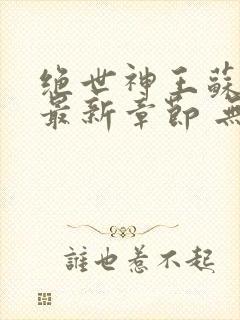 绝世神王蘇
最新章節 無
誰也惹不起